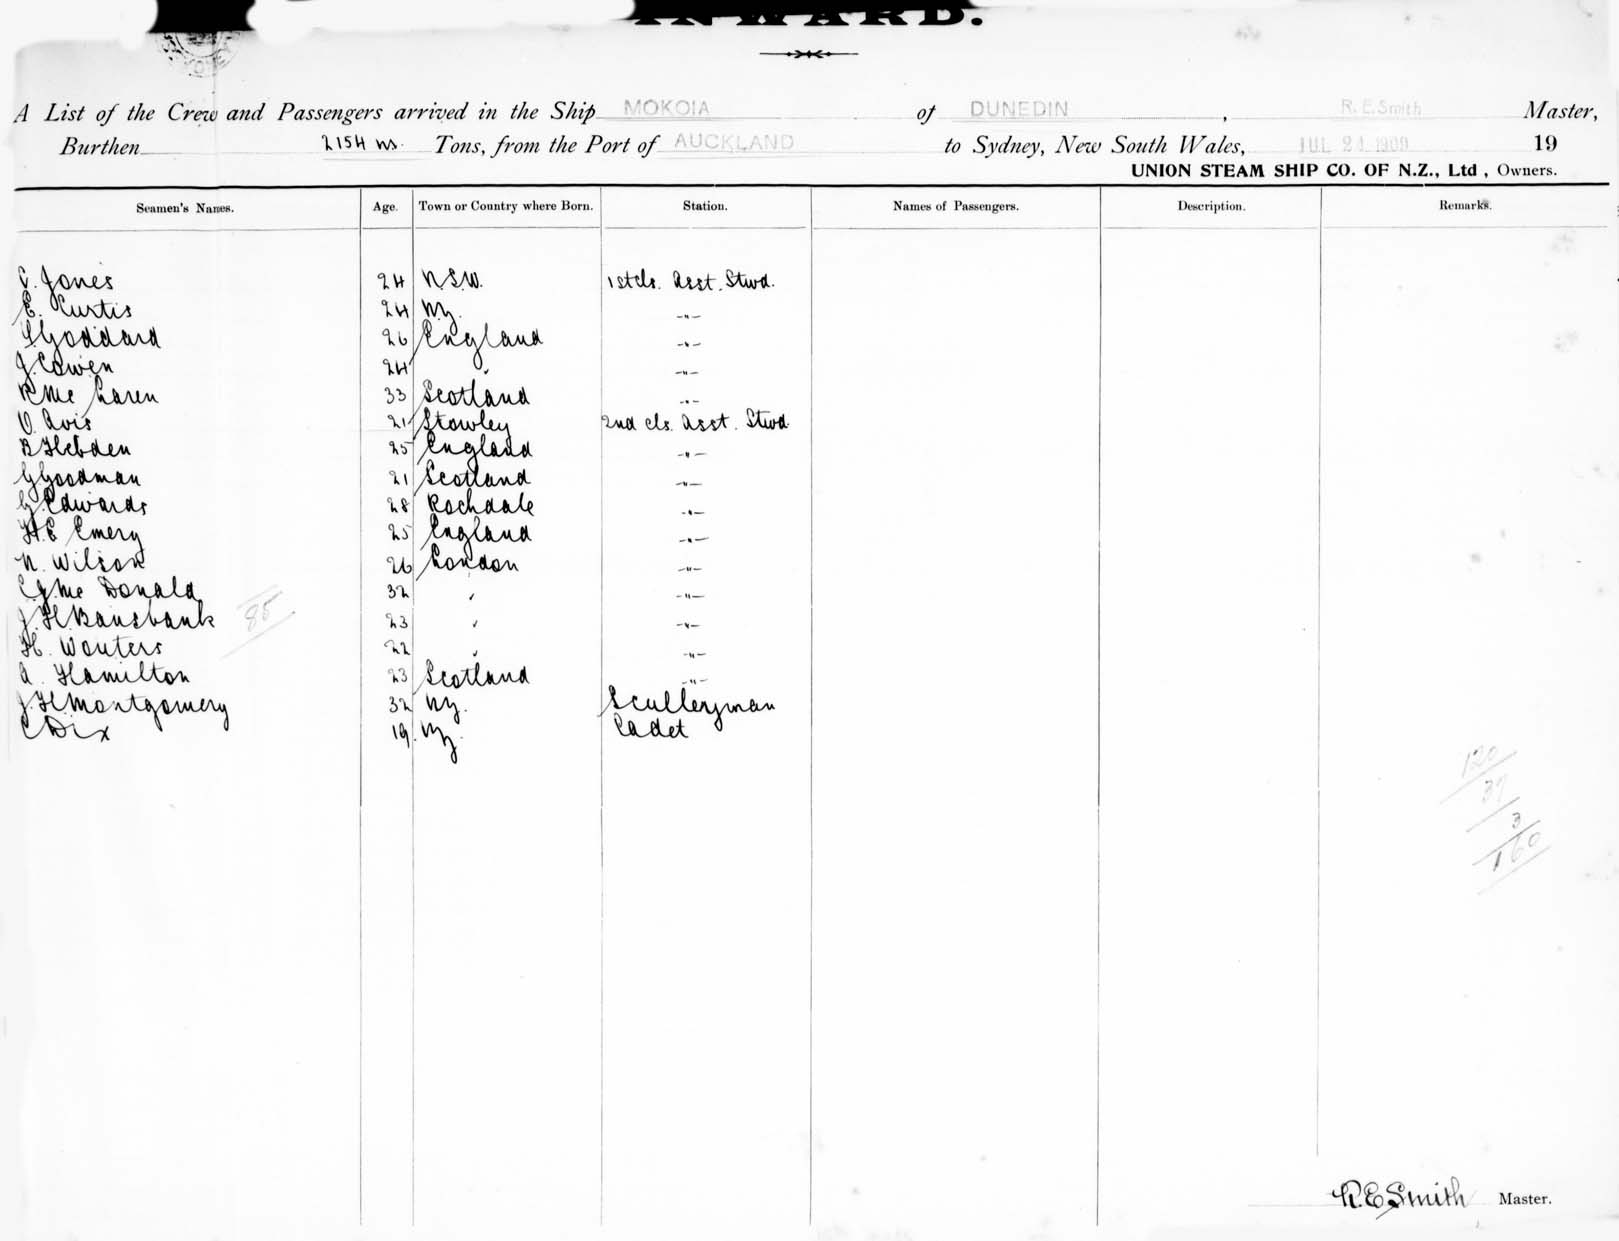 INWARD.
A List of the Crew and Passengers arrived in the Ship MOKOIA of DUNEDIN , R. E. Smith Master,
Burthen 2154 Tons, from the Port of AUCKLAND to Sydney, New South Wales, JUL 24 1909 19
UNION STEAM SHIP CO. OF N.Z., Ltd , Owners.
Seamen's Names. Age. Town or Country where Born. Station. Names of Passengers. Description. Remarks.
C. Jones 24 N.S.W. 1st cls. Asst. Stwd.
E. Curtis 24 N.Z. -"-
Goddard 26 England -"-
J. Cowen 24 " -"-
R Mc Laren 33 Scotland -"-
V. Avis 21 Stowley 2nd cls. Asst. Stwd.
B Hebden 25 England -"-
G Goodman 21 Scotland -"-
G. Edwards 28 Rochdale -"-
H. E Emery 25 England -"-
N. Wilson 26 London -"-
C. J. Mc Donald 32 " -"-
J. H. Bansbank 23 " -"-
85
H. Wouters 22 " -"-
A. Hamilton 23 Scotland -"-
J. H. Montgomery 32 N.Z. Sculleryman
C Dix 19. N.Z. Cadet
120
37
3
160
R. E Smith Master.